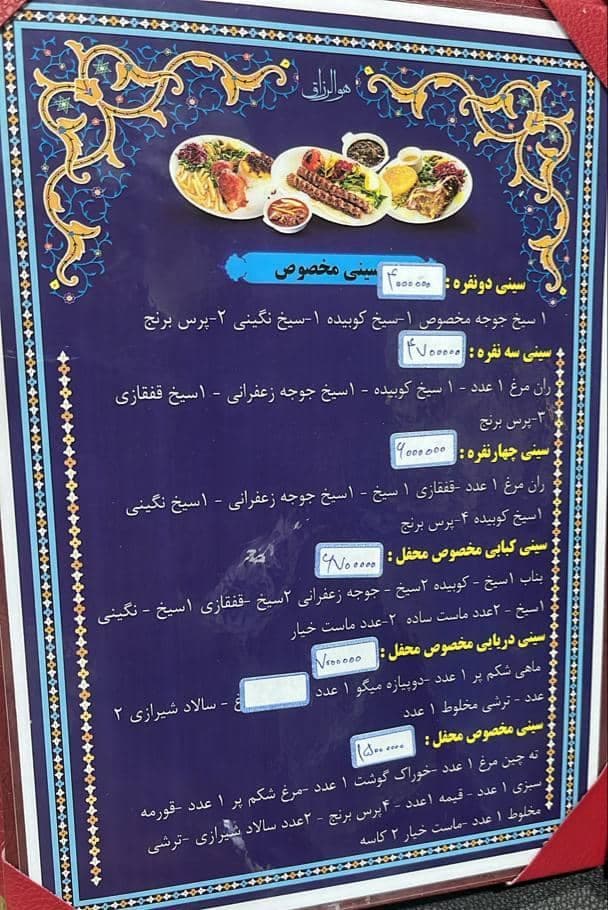 هوالرزاق
سینی مخصوص
سینی دونفره : ۴۰۰۰۰۰۰
۱ سیخ جوجه مخصوص ۱-سیخ کوبیده ۱-سیخ نگینی ۲-پرس برنج
سینی سه نفره : ۴۷۰۰۰۰۰
ران مرغ ۱ عدد - ۱ سیخ کوبیده - ۱سیخ جوجه زعفرانی - ۱سیخ قفقازی
۳-پرس برنج
سینی چهارنفره : ۶۰۰۰۰۰۰
ران مرغ ۱ عدد -قفقازی ۱ سیخ - ۱سیخ جوجه زعفرانی - ۱سیخ نگینی
۱سیخ کوبیده ۴-پرس برنج
سینی کبابی مخصوص محفل : ۶۷۰۰۰۰۰
بناب ۱سیخ - کوبیده ۲سیخ - جوجه زعفرانی ۲سیخ -قفقازی ۱سیخ - نگینی
۱سیخ - ۲عدد ماست ساده ۲-عدد ماست خیار
سینی دریایی مخصوص محفل : ۷۰۰۰۰۰۰
ماهی شکم پر ۱ عدد -دوپیازه میگو ۱ عدد - سالاد شیرازی ۲
عدد - ترشی مخلوط ۱ عدد
سینی مخصوص محفل : ۱۵۰۰۰۰۰۰
ته چین مرغ ۱ عدد -خوراک گوشت ۱ عدد -مرغ شکم پر ۱ عدد -قورمه
سبزی ۱ عدد - قیمه ۱عدد - ۴پرس برنج - ۲عدد سالاد شیرازی -ترشی
مخلوط ۱ عدد -ماست خیار ۲ کاسه